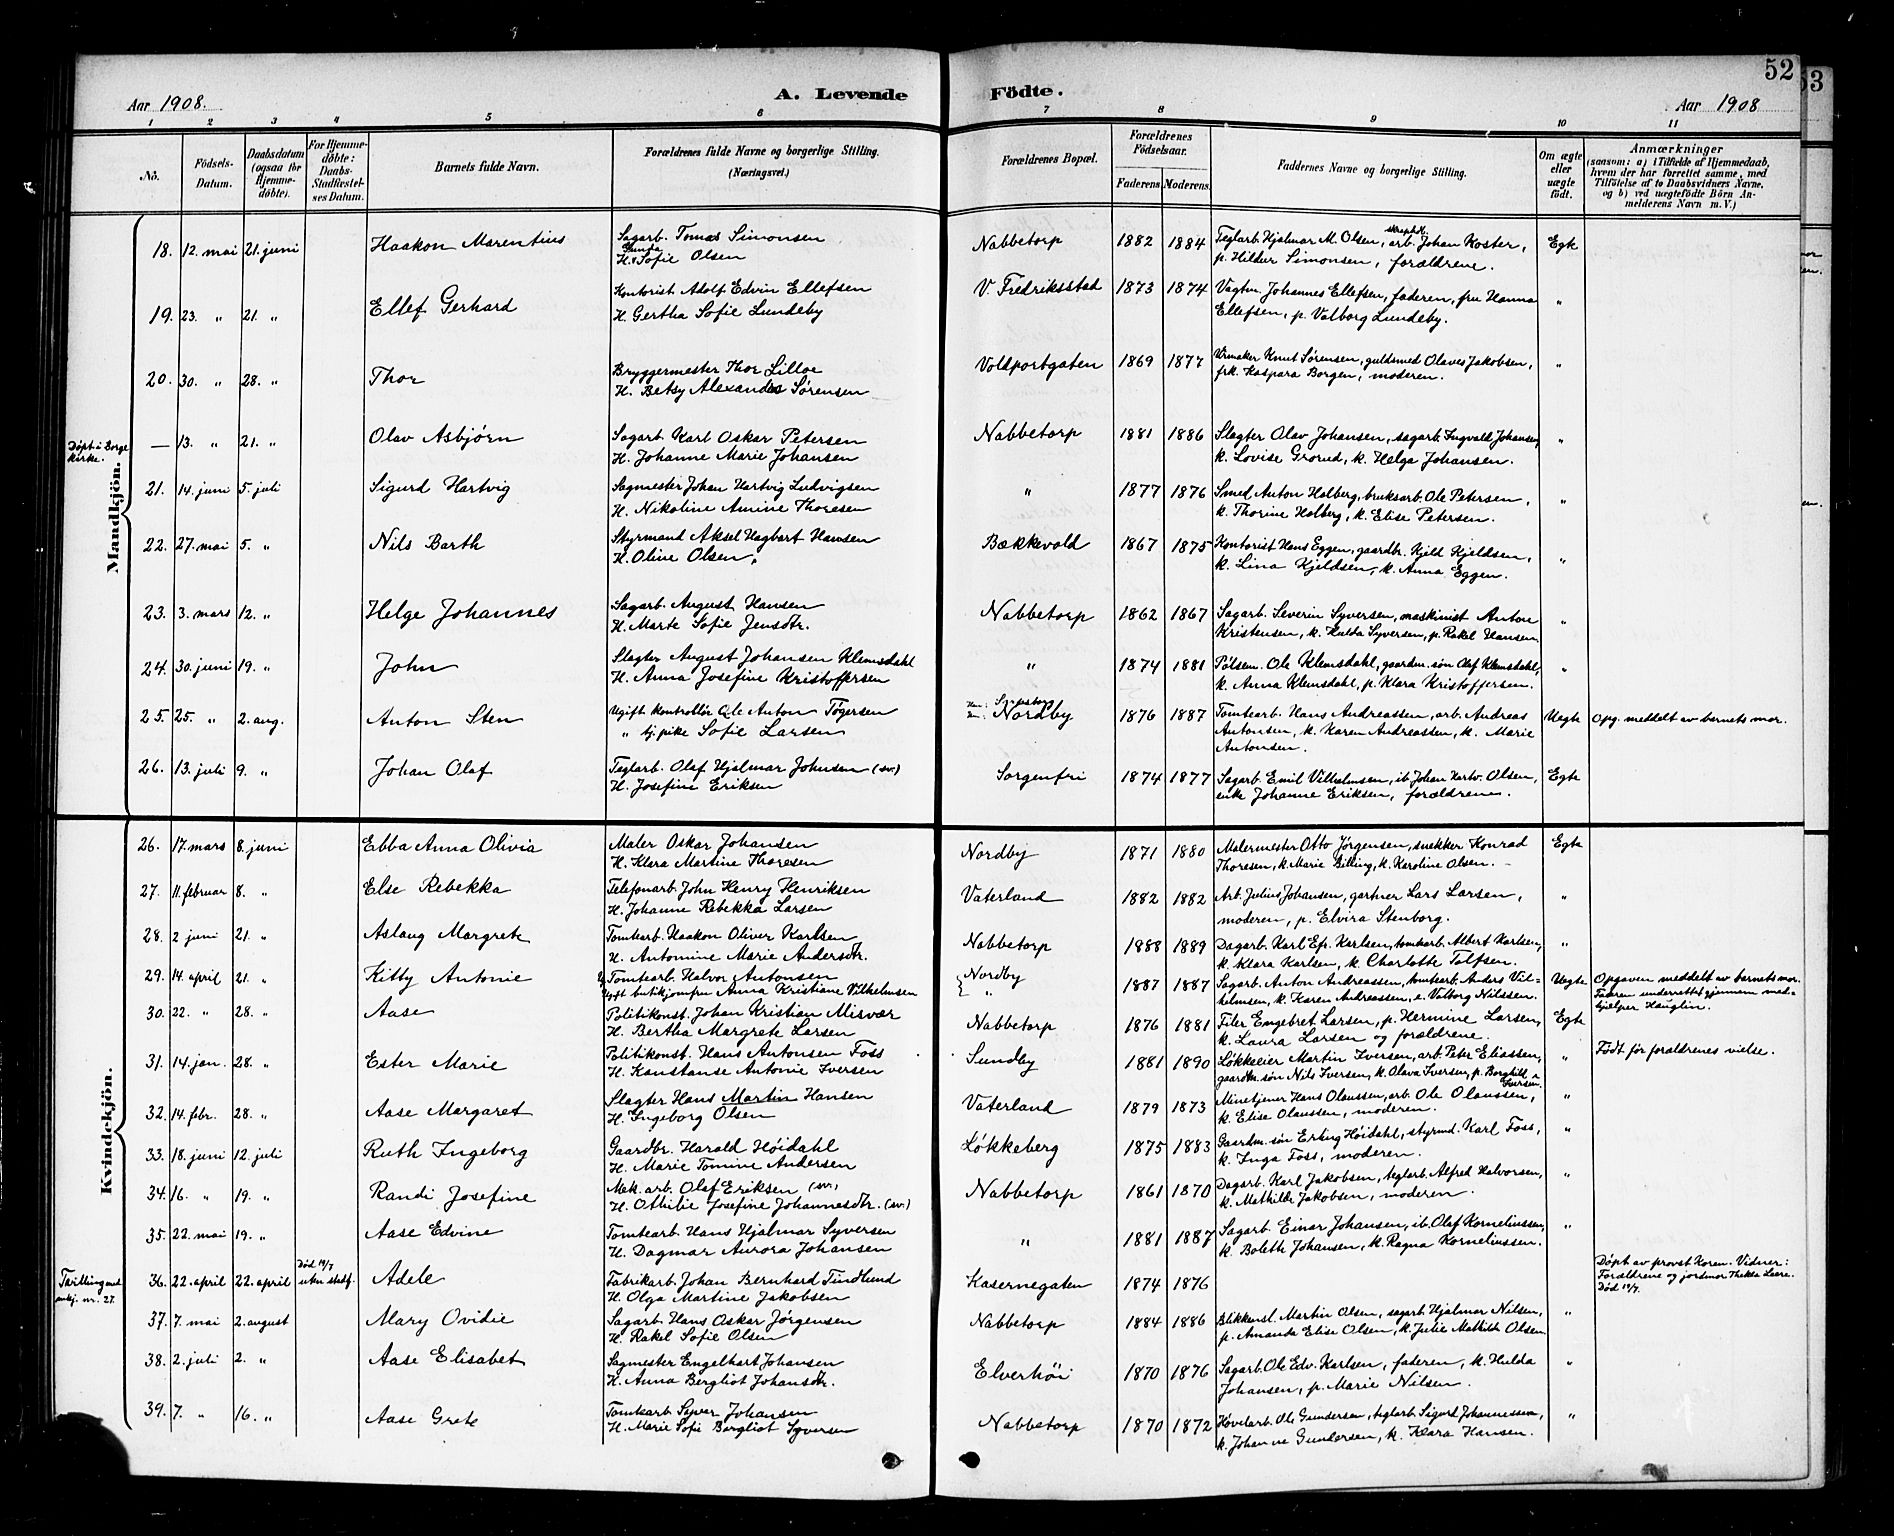 52
53
Aar 1908.
A. Levende
Födte.
Aar 1908
1 2 3 4 5 6 7 8 9 10 11
No.
Födsels-Datum.
Daabsdatum (ogsaa for Hjemmedöbte).
For Hjemmedöbte: Daabs-Stadfæstelses Datum.
Barnets fulde Navn.
Forældrenes fulde Navne og borgerlige Stilling. (Næringsvei.)
Forældrenes Bopæl.
Forældrenes Födselsaar.
Faderens Moderens.
Faddernes Navne og borgerlige Stilling.
Om ægte eller uægte födt.
Anmærkninger
(saasom: a) i Tilfælde af Hjemmedaab, hvem der har forrettet samme, med Tilföielse af to Daabsvidners Navne, og b) ved uægtefödte Börn Anmelderens Navn m. V.)
Mandkjön.
18. 12. mai 21. juni Haakon Marentius Sagarb. Tomas Simonsen Nabbetorp 1882 1884 Teglarb. Hjalmar M. Olsen, arb. Johan Koster, Egte
H. Gunda Sofie Olsen p. Hildur Simonsen, forældrene.
19. 23. " 21. " Ellef Gerhard Kontorist Adolf Edvin Ellefsen V. Fredriksstad 1873 1874 Vagtm. Johannes Ellefsen, faderen, fru Hanna "
H. Gertha Sofie Lundeby Ellefsen, p. Valborg Lundeby.
20. 30. " 28. " Thor Bryggermester Thor Lilloe Voldportgaten 1869 1877 Urmaker Knut Sørensen, guldsmed Olaves Jakobsen, "
H. Betsy Alexandra Sørensen frk. Kaspara Borgen, moderen.
Døpt i Borge kirke.
— 13. " 21. " Olav Asbjørn Sagarb. Karl Oskar Petersen Nabbetorp 1881 1886 Slagter Olav Johansen, sagarb. Ingvald Johansen, "
H. Johanne Marie Johansen k. Lovise Grorud, k. Helga Johansen.
21. 14. juni 5. juli Sigurd Hartvig Sagmester Johan Hartvig Ludvigsen " 1877 1876 Smed Anton Holberg, bruksarb. Ole Petersen, "
H. Nikoline Amine Thoresen k. Thorine Holberg, k. Elise Petersen.
22. 27. mai 5. " Nils Barth Styrmand Aksel Hagbart Hansen Bækkevold 1867 1875 Kontorist Hans Eggen, gaardbr. Kjeld Kjeldsen, "
H. Oline Olsen. k. Lina Kjeldsen, k. Anna Eggen.
23. 3. mars 12. " Helge Johannes Sagarb. August Hansen Nabbetorp 1862 1867 Sagarb. Severin Syversen, maskinist Anton "
H. Marte Sofie Jensdtr. Kristensen, k. Hulda Syversen, p. Rakel Hansen.
24. 30. juni 19. " John Slagter August Johansen Klemsdahl " 1874 1881 Pølsem. Ole Klemsdahl, gaardm. søn Olaf Klemsdahl, "
H. Anna Josefine Kristoffersen k. Anna Klemsdahl, p. Klara Kristoffersen.
25. 25. " 2. aug. Anton Sten Ugift kontrollør Ole Anton Tøgersen Nordby 1876 1887 Tomtearb. Hans Andreassen, arb. Andreas Uegte Opg. meddelt av barnets mor.
" tj. pike Sofie Larsen Antonsen, k. Karen Andreassen, k. Marie
Antonsen.
26. 13. juli 9. " Johan Olaf Teglarb. Olaf Hjalmar Johnsen (sv.) Sorgenfri 1874 1877 Sagarb. Emil Vilhelmsen, ib. Johan Hartv. Olsen, Egte
H. Josefine Eriksen enke Johanne Eriksen, forældrene.
Kvindekjön.
26. 17. mars 8. juni Ebba Anna Olivia Maler Oskar Johansen Nordby 1871 1880 Malermester Otto Jørgensen, snekker Konrad Egte
H. Klara Martine Thoresen Thoresen, k. Marie Billing, k. Karoline Olsen.
27. 11. februar 8. " Else Rebekka Telefonarb. John Henry Henriksen Vaterland 1882 1882 Arb. Julius Johansen, gartner Lars Larsen, "
H. Johanne Rebekka Larsen moderen, p. Elvira Stenborg.
28. 2 juni 21. " Aslaug Margrete Tomtearb. Haakon Oliver Karlsen Nabbetorp 1888 1889 Dagarb. Karl Efr. Karlsen, tomtearb. Albert Karlsen, "
H. Antomine Marie Andersdtr. k. Klara Karlsen, k. Charlotte Tolfsen.
29. 14. april 21. " Kitty Antonie Tomtearb. Halvor Antonsen Nordby 1887 1887 Sagarb. Anton Andreassen, tomtearb. Anders Vil- Uegte Opgaven meddelt av barnets mor.
Ugift butikjomfru Anna Kristiane Vilhelmsen " helmsen, k. Karen Andreassen, e. Valborg Nilssen. Faderen underrettet gjennem med-
hjælper Hauglin.
30. 22. " 28. " Aase Politikonst. Johan Kristian Misvær Nabbetorp 1876 1881 Filer Engebret Larsen, p. Hermine Larsen, Egte
H. Bertha Margrete Larsen k. Laura Larsen og forældrene.
31. 14. jan. 28. " Ester Marie Politikonst. Hans Antonsen Foss Sundby 1881 1890 Løkkeier Martin Iversen, arb. Peter Eliassen, " Født før forældrenes vielse.
H. Konstanse Antonie Iversen gaardm. søn Nils Iversen, k. Olava Iversen, p. Borghild Iversen.
32. 14. febr. 28. " Aase Margaret Slagter Hans Martin Hansen Vaterland 1879 1873 Minetjener Hans Olaussen, arb. Ole Olaussen, "
H. Ingeborg Olsen k. Elise Olaussen, moderen.
33. 18. juni 12. juli Ruth Ingeborg Gaardbr. Harald Høidahl Løkkeberg 1875 1883 Gaardm. søn Erling Høidahl, styrmd. Karl Foss, "
H. Marie Tomine Andersen k. Inga Foss, moderen.
34. 16. " 19. " Randi Josefine Mek. arb. Olaf Eriksen (sv.) Nabbetorp 1861 1870 Dagarb. Karl Jakobsen, teglarb. Alfred Halvorsen, "
H. Othilie Josefine Johannesdtr. (sv.) k. Mathilde Jakobsen, moderen.
35. 22. mai 19. " Aase Edvine Tomtearb. Hans Hjalmar Syversen " 1881 1887 Sagarb. Einar Johansen, ib. Olaf Korneliussen, "
H. Dagmar Aurora Johansen k. Boleth Johansen, k. Ragna Korneliussen.
Tvilling med mkj. nr. 27.
36. 22. april 22. april Død 19/7 uten stadf. Adele Fabrikarb. Johan Bernhard Tindlund Kasernegaten 1874 1876 Døpt av provst Koren. Vidner:
H. Olga Martine Jakobsen Forældrene og jordmor Thekla Leere.
Død 19/7.
37. 7. mai 2. august Mary Ovidie Sagarb. Hans Oskar Jørgensen Nabbetorp 1884 1886 Blikkensl. Martin Olsen, sagarb. Hjalmar Nilsen, "
H. Rakel Sofie Olsen p. Amanda Elise Olsen, k. Julie Mathilde Olsen.
38. 2. juli 2. " Aase Elisabet Sagmester Engelhart Johansen Elverhöi 1870 1876 Sagarb. Ole Edv. Karlsen, faderen, k. Hulda "
H. Anna Bergliot Johansdtr. Johansen, p. Marie Nilsen.
39. 7. " 16. " Aase Grete Tomtearb. Syver Johansen Nabbetorp 1870 1872 Høvelarb. Ole Gundersen, teglarb. Sigurd Johannessen, "
H. Marie Sofie Bergliot Syversen k. Johanne Gundersen, k. Klara Hansen.